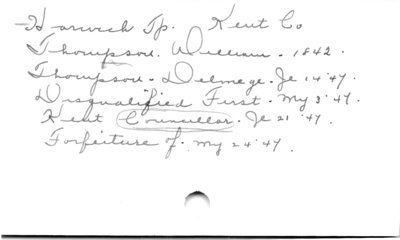 -Harwich Tp. Kent Co
Thompson. William - 1842.
Thompson - Delmege. Je 14'47.
Disqualified First. My 3'47.
Kent Councillor. Je 21'47.
Forfeiture of. My 24'47.